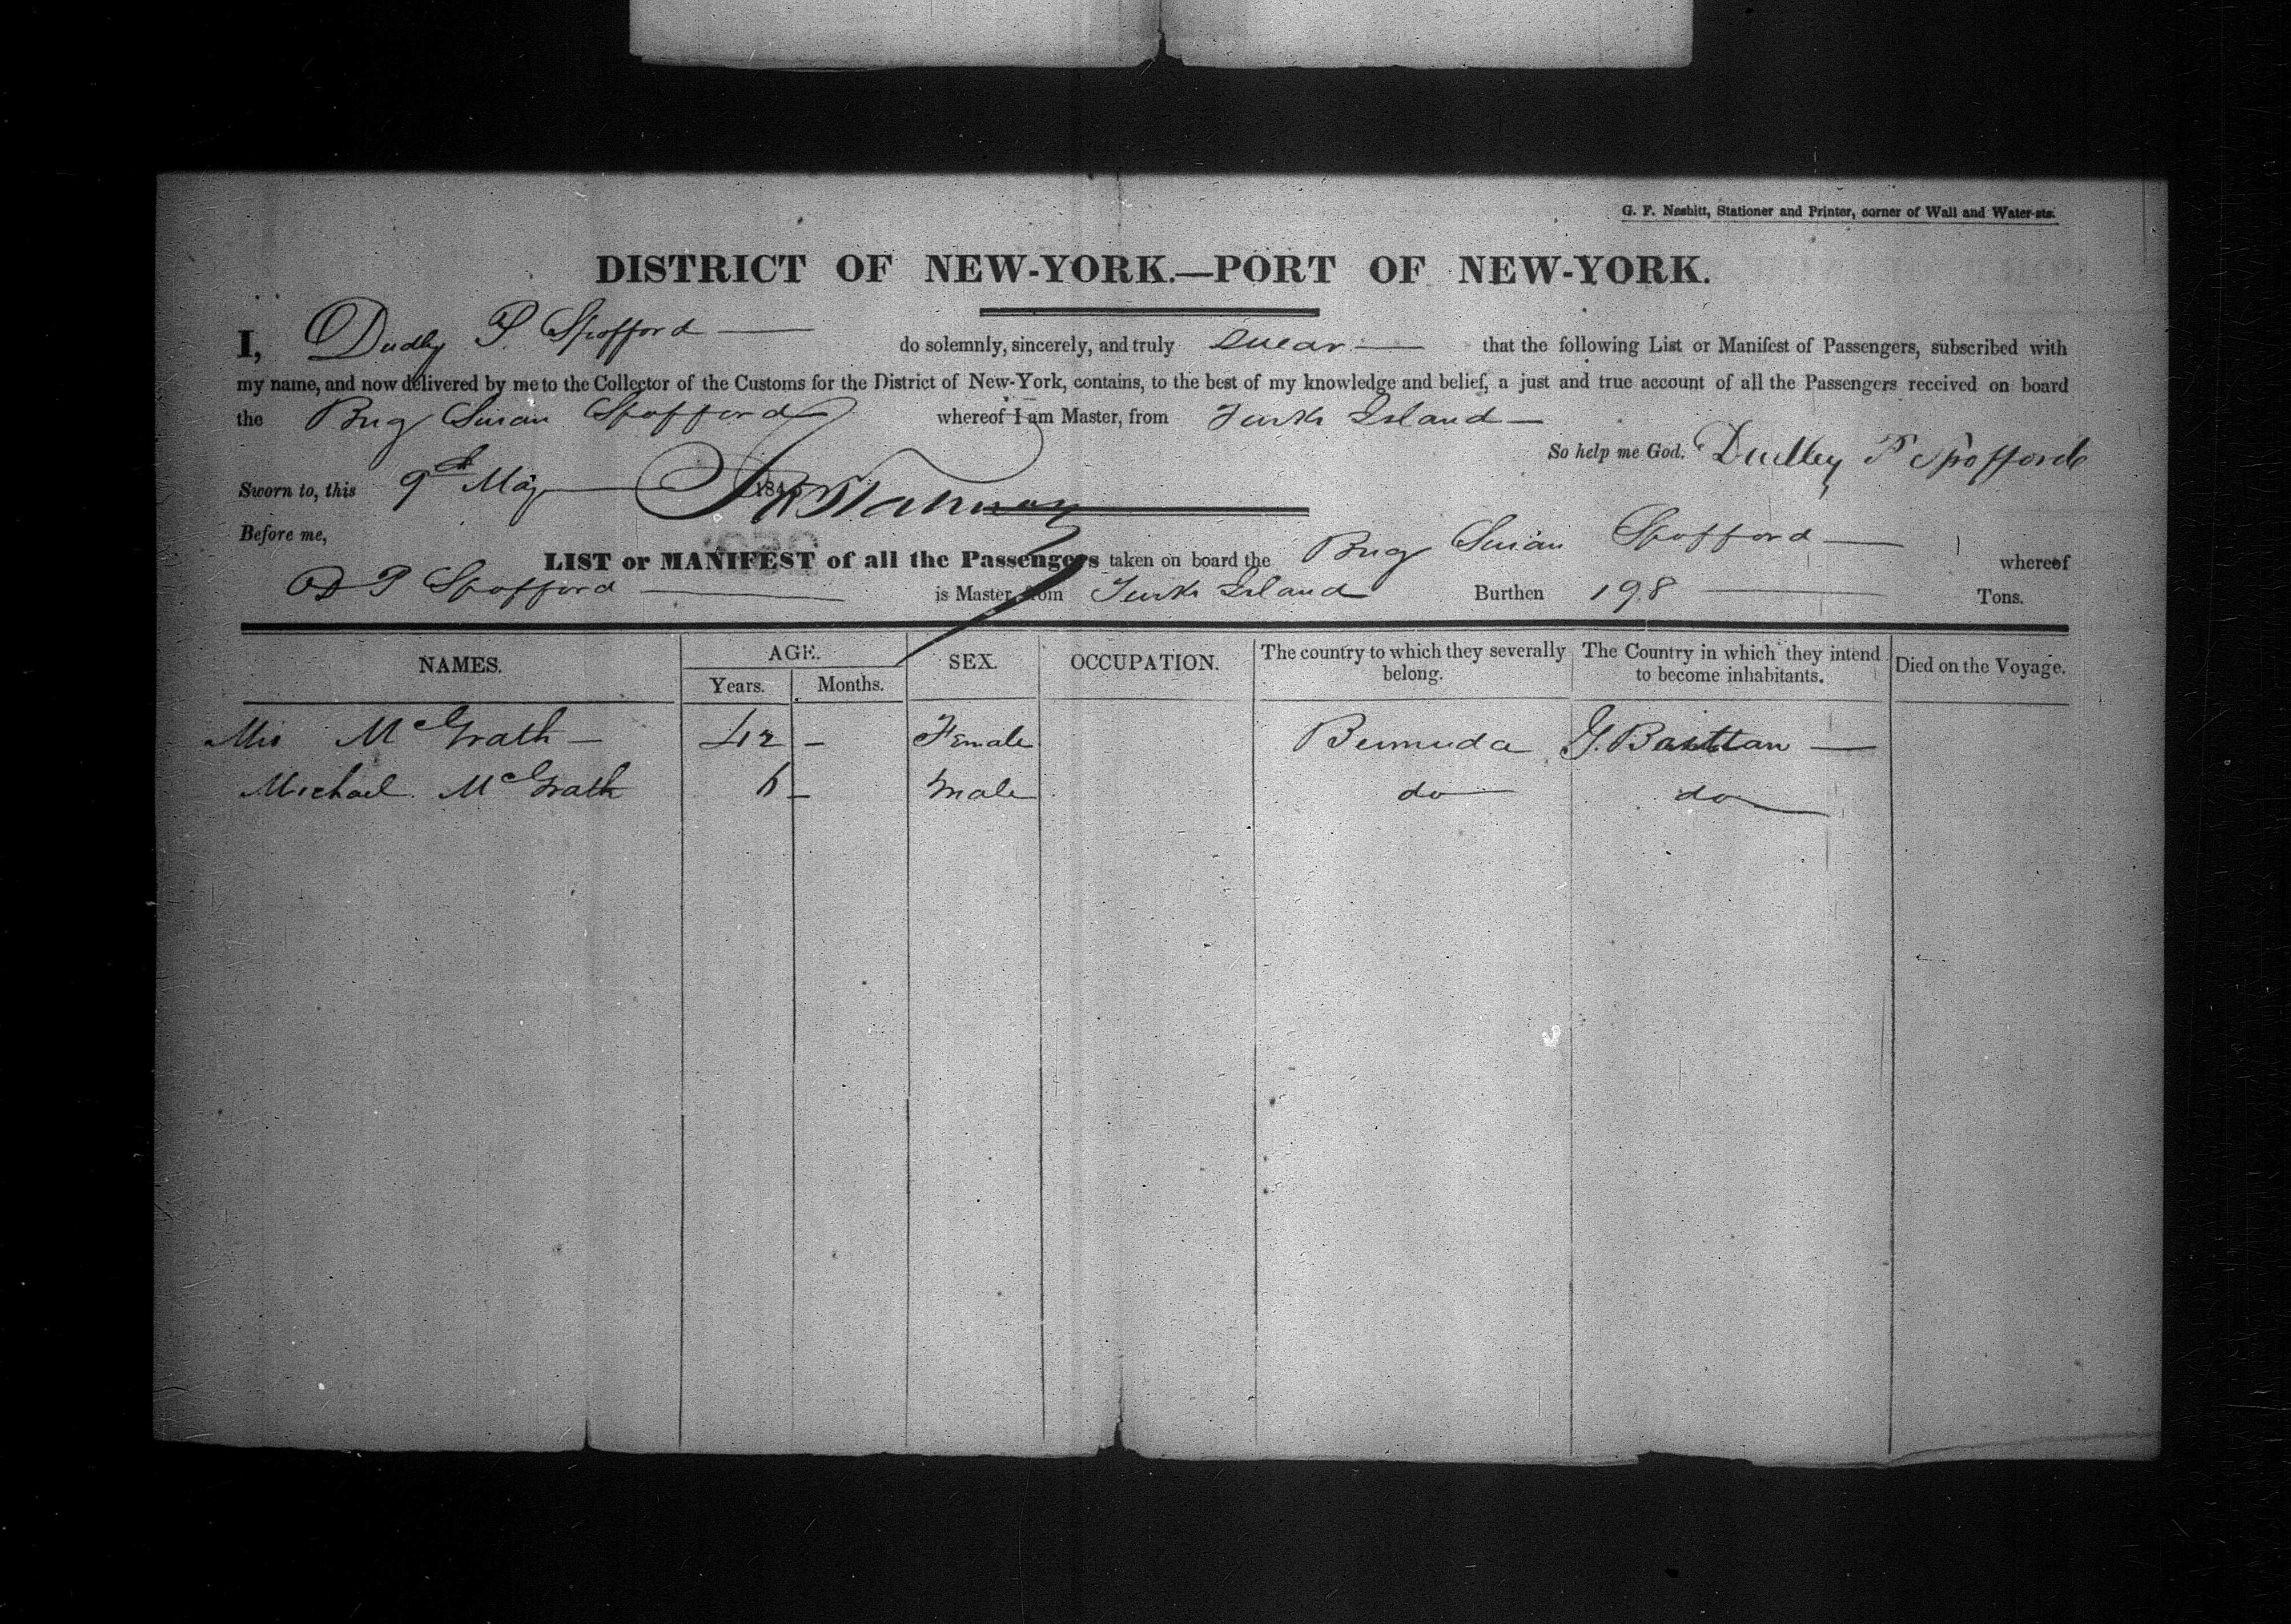 G. F. Nesbitt, Stationer and Printer, corner of Wall and Water-sts.
DISTRICT OF NEW-YORK.—PORT OF NEW-YORK.
I, Dudley P. Spofford — do solemnly, sincerely, and truly swear — that the following List or Manifest of Passengers, subscribed with
my name, and now delivered by me to the Collector of the Customs for the District of New-York, contains, to the best of my knowledge and belief, a just and true account of all the Passengers received on board
the Brig Susan Spofford whereof I am Master, from Turks Island —
So help me God. Dudley P Spofford
Sworn to, this 9th May 184
Before me,
LIST or MANIFEST of all the Passengers taken on board the Brig Susan Spofford — whereof
D P Spofford — is Master, from Turks Island Burthen 198 — Tons.
NAMES. AGE. SEX. OCCUPATION. The country to which they severally belong. The Country in which they intend to become inhabitants. Died on the Voyage.
Years. Months.
Mrs McGrath — 42 — Female Bermuda G. Brittan —
Michael McGrath 6 — Male do do